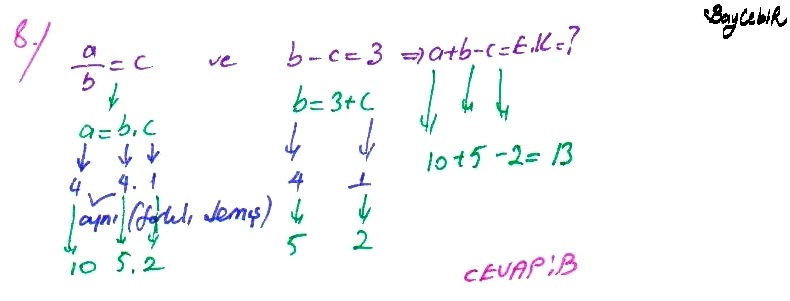 BayCebir
8.) a/b = c ve b-c=3 ⇒ a+b-c=E.K=?
a=b.c b=3+c
10+5-2=13
4 4.1 4 1
aynı (farklı demiş)
10 5.2 5 2
CEVAP:B